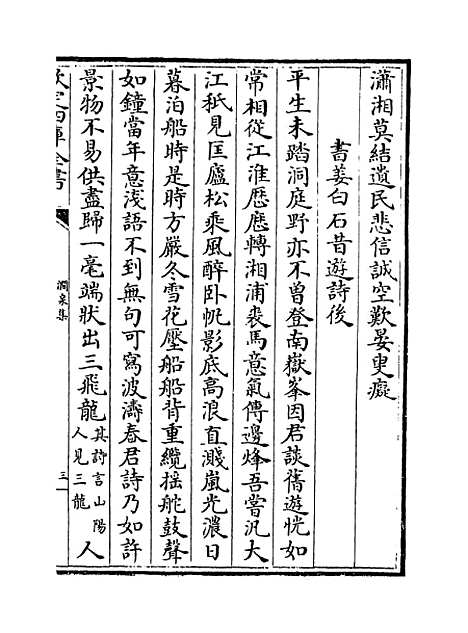 瀟湘莫結遺民悲信誠空歎晏吏癡
書姜白石昔遊詩後
平生未踏洞庭野亦不曾登南嶽峯因君談舊遊恍如
常相從江淮歷歷轉湘浦裘馬意氣傳邊烽吾嘗汎大
江秪見匡廬松乘風醉卧帆影底高浪直濺嵐光濃日
暮泊船時是時方嚴冬雪花壓船船背重纜摇舵鼓聲
如鐘當年意淺語不到無句可寫波濤舂君詩乃如許
景物不易供盡歸一毫端狀出三飛龍其詩言山陽人見三龍人
欽定四庫全書
澗泉集
三